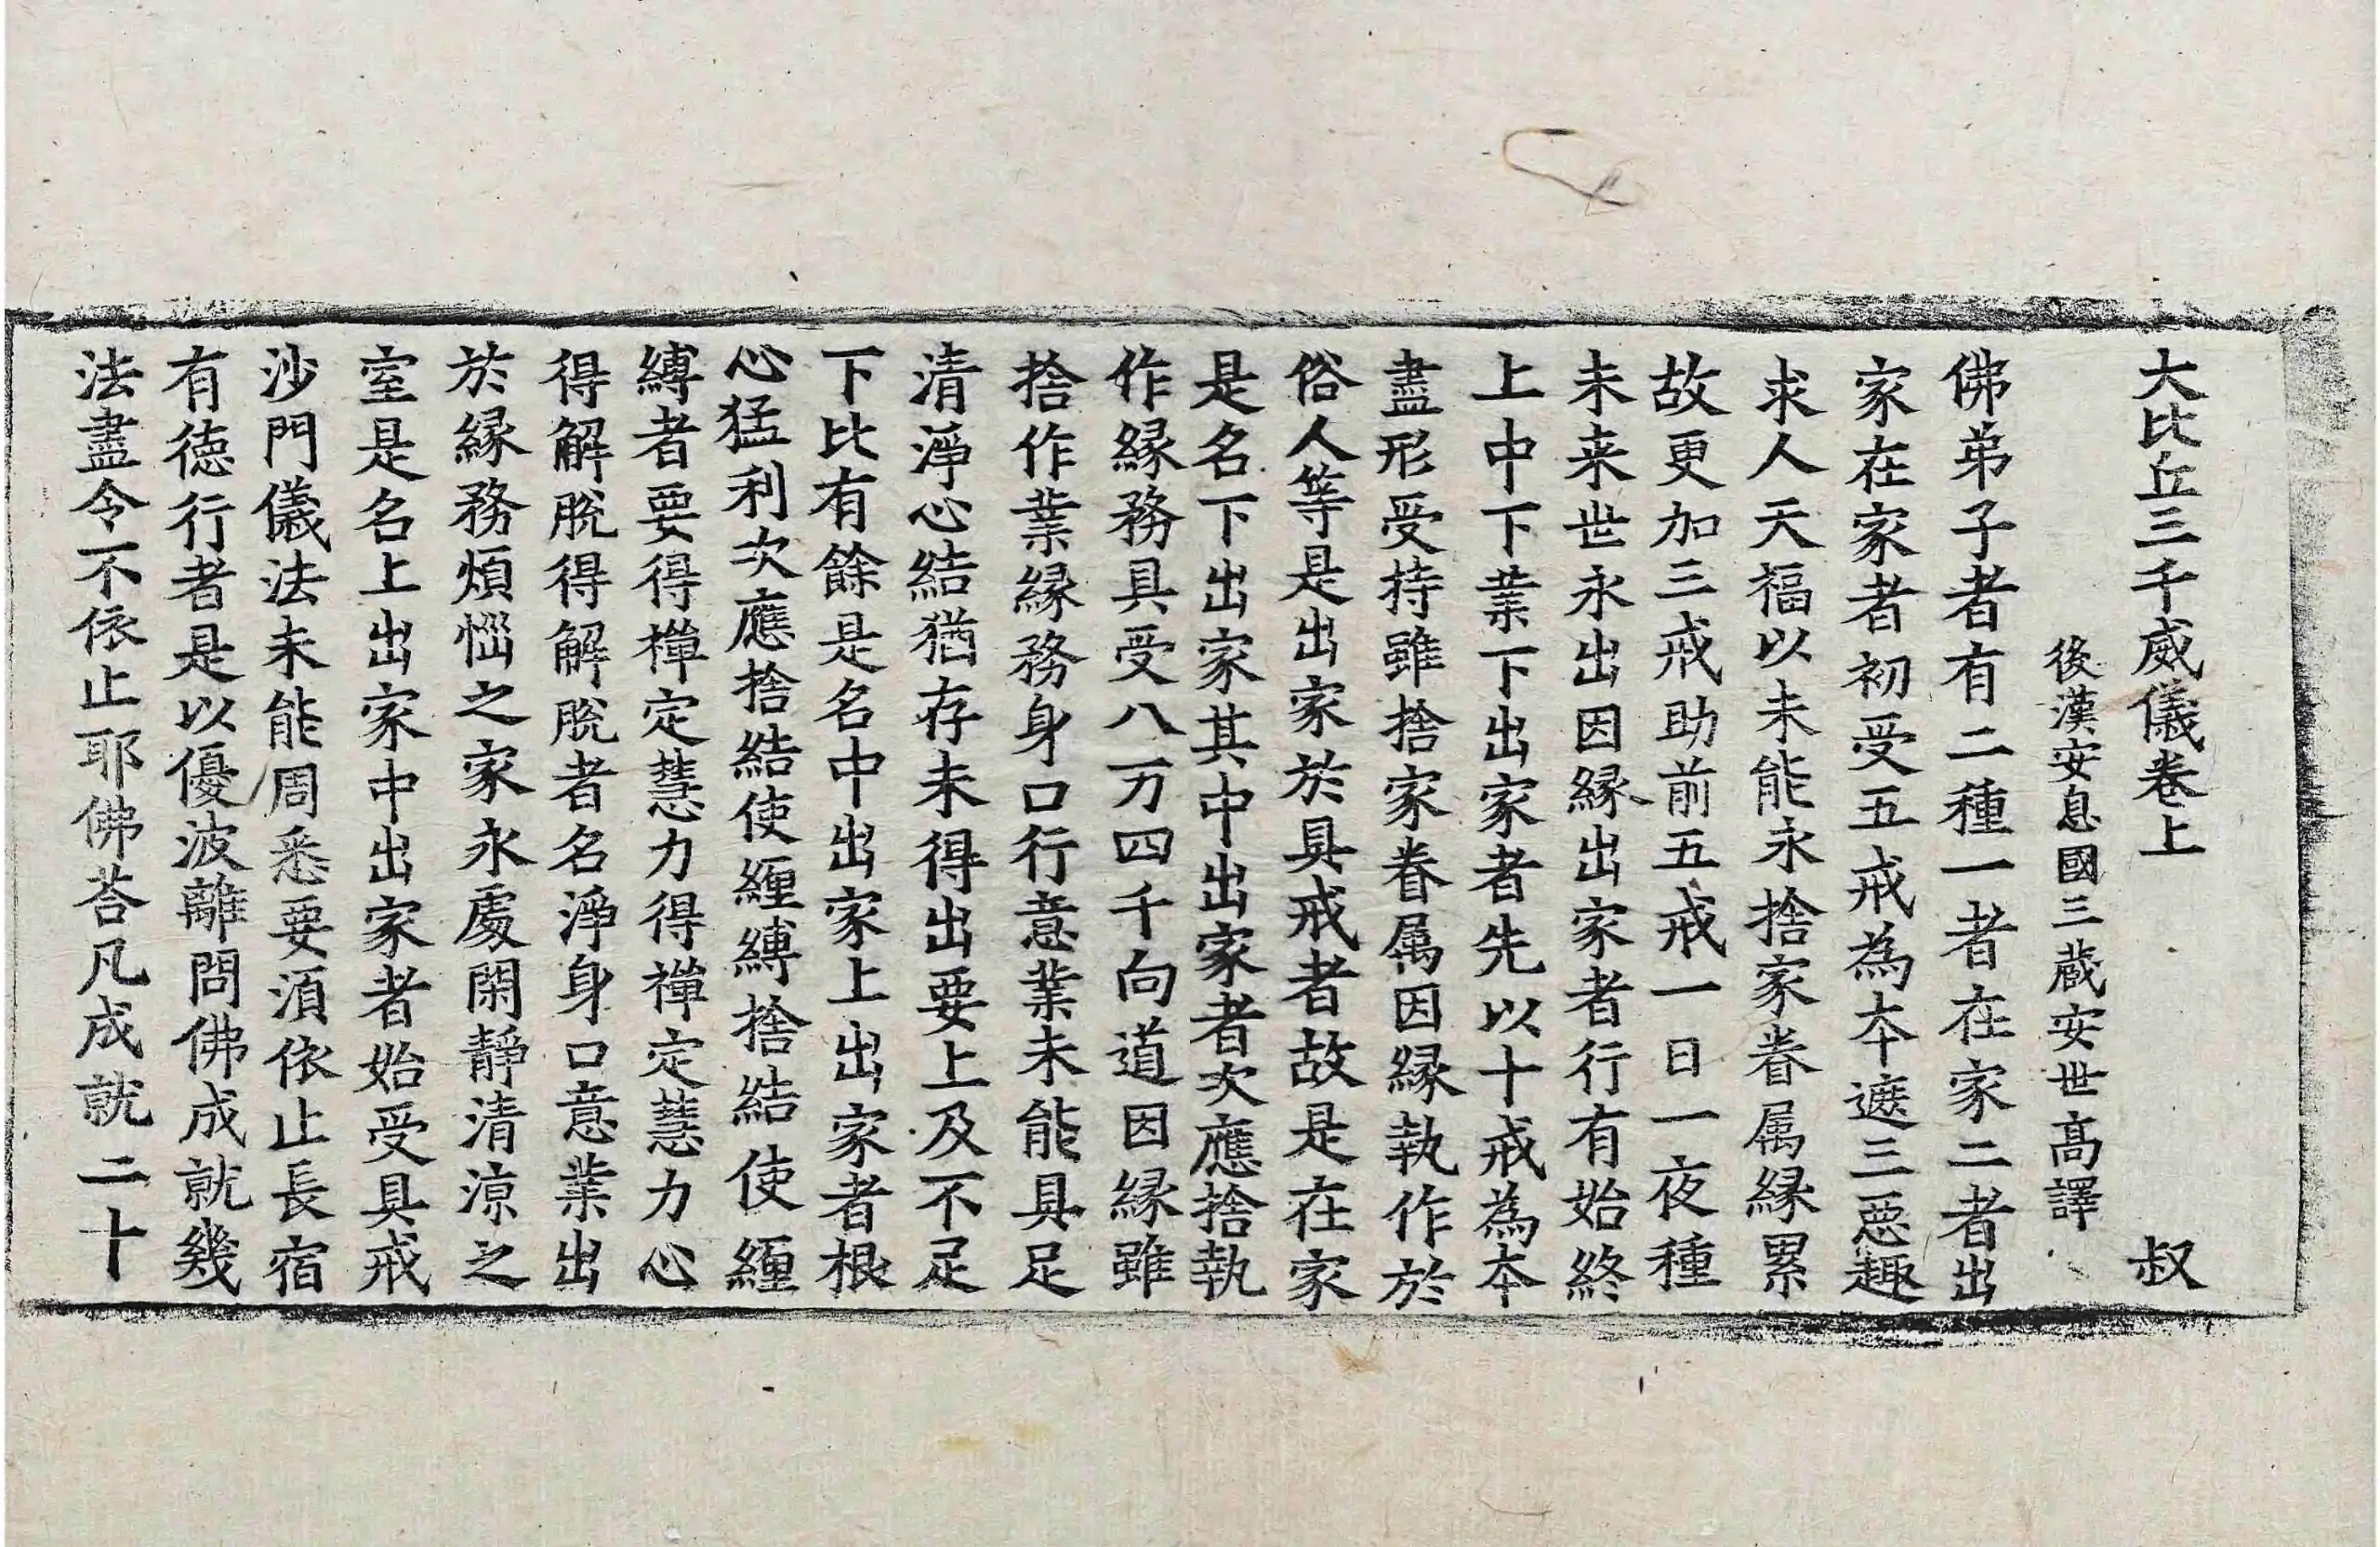 大比丘三千威儀卷上 叔
後漢安息國三蔵安世高譯
佛弟子者有二種一者在家二者出
家在家者初受五戒為夲遮三惡趣
求人天福以未能永捨家眷属縁累
故更加三戒助前五戒一日一夜種
未来世永出因縁出家者行有始終
上中下業下出家者先以十戒為夲
盡形受持雖捨家眷属因縁執作於
俗人等是出家於具戒者故是在家
是名下出家其中出家者次應捨執
作縁務具受八万四千向道因縁雖
捨作業縁務身口行意業未能具足
清淨心結猶存未得出要上及不足
下比有餘是名中出家上出家者根
心猛利次應捨結使纏縛捨結使纏
縛者要得禪定慧力得禪定慧力心
得解脫得解脫者名淨身口意業出
於縁務煩惱之家永處閑靜清涼之
室是名上出家中出家者始受具戒
沙門儀法未能周悉要須依止長宿
有徳行者是以優波離問佛成就幾
法盡令不依止耶佛荅凡成就二十